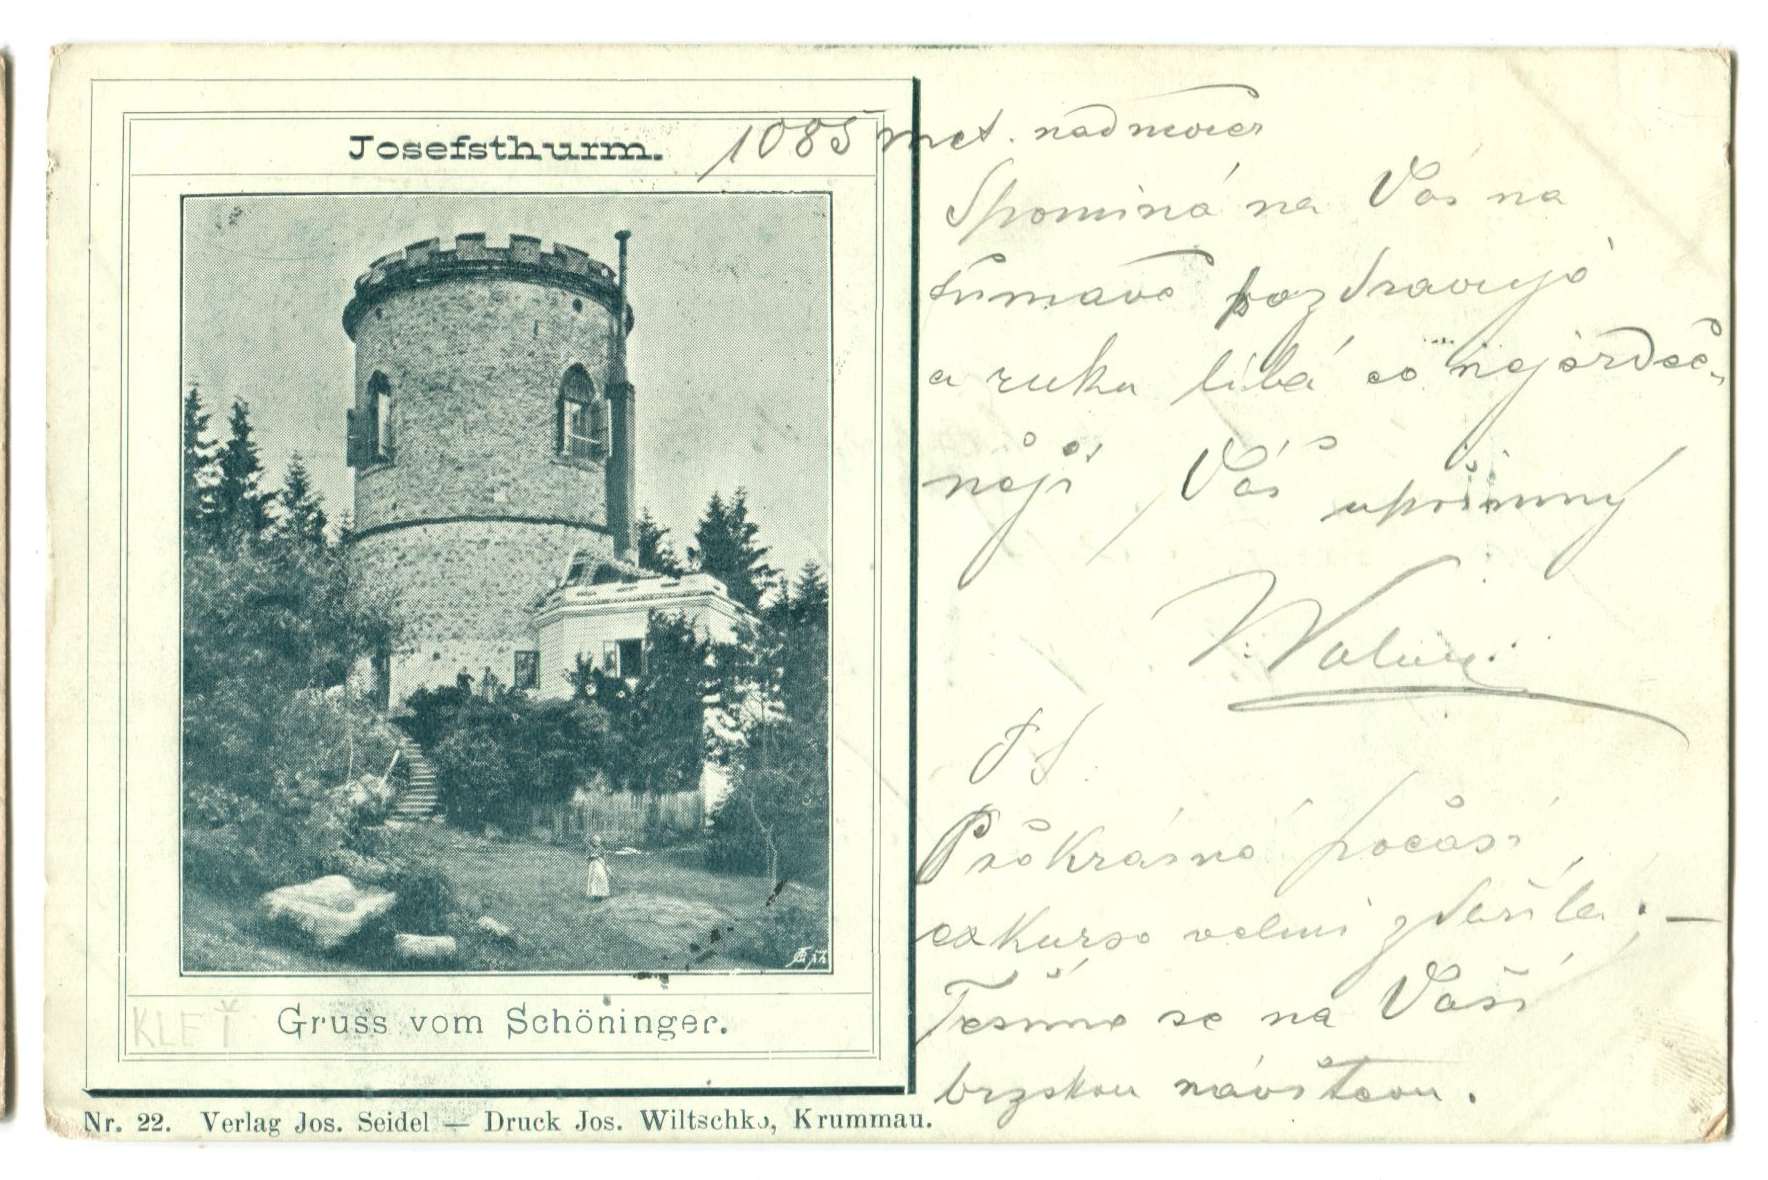 Josefsthurm.
1085 met. nad
Spomíná na Vás na
pozdravuje
a ruku líbá co nejsrdeč-
něji Váš upřímný
PS.
Překrásné počasí,
exkurse velmi zdařila; —
Těšíme se na Vaši
brzskou návštěvu.
KLEŤ
Gruss vom Schöninger.
Nr. 22. Verlag Jos. Seidel — Druck Jos. Wiltschko, Krummau.